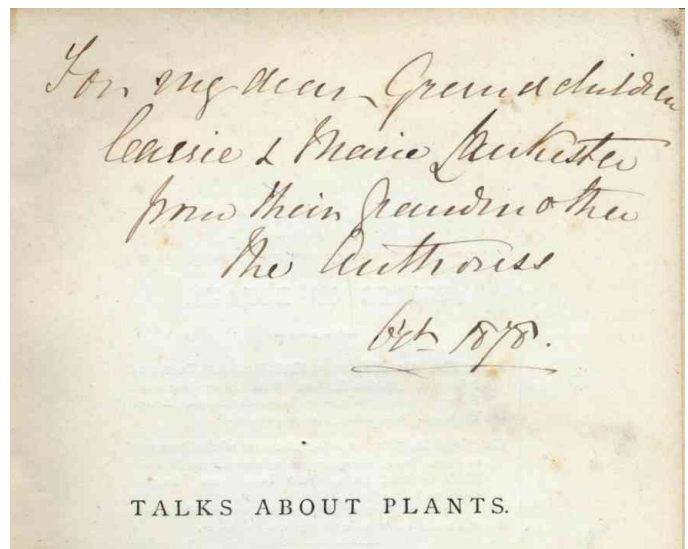 For my dear Grandchildren
Cassie & Marie Lankester
from their Grandmother
the Authoress
Octr 1878.
TALKS ABOUT PLANTS.